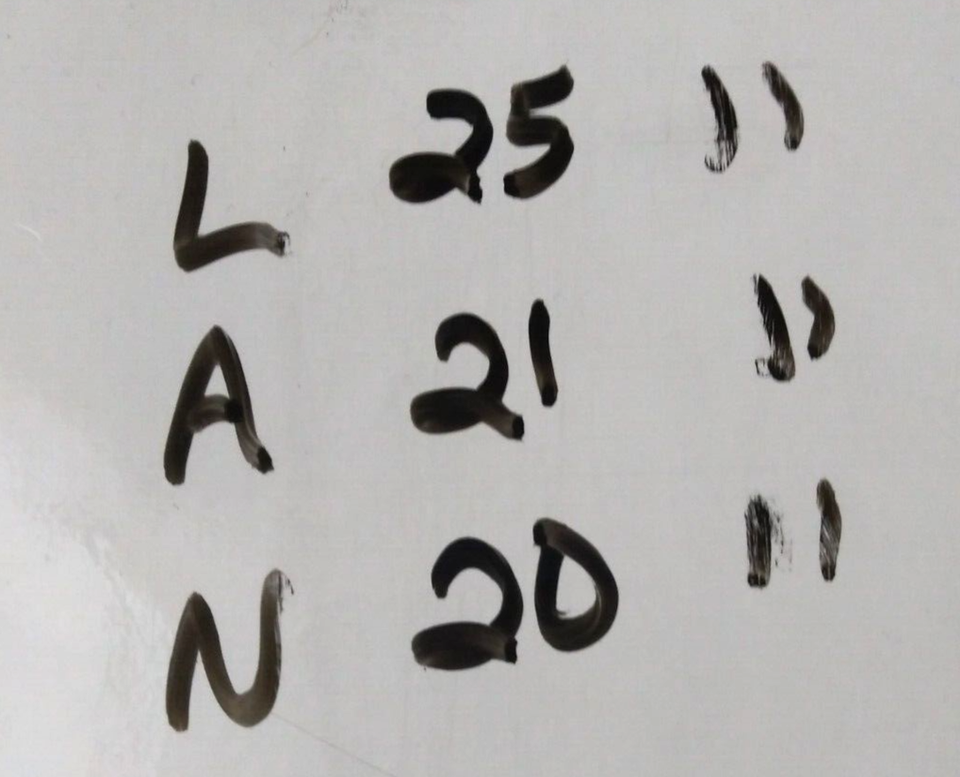 L 25 "
A 21 "
N 20 "